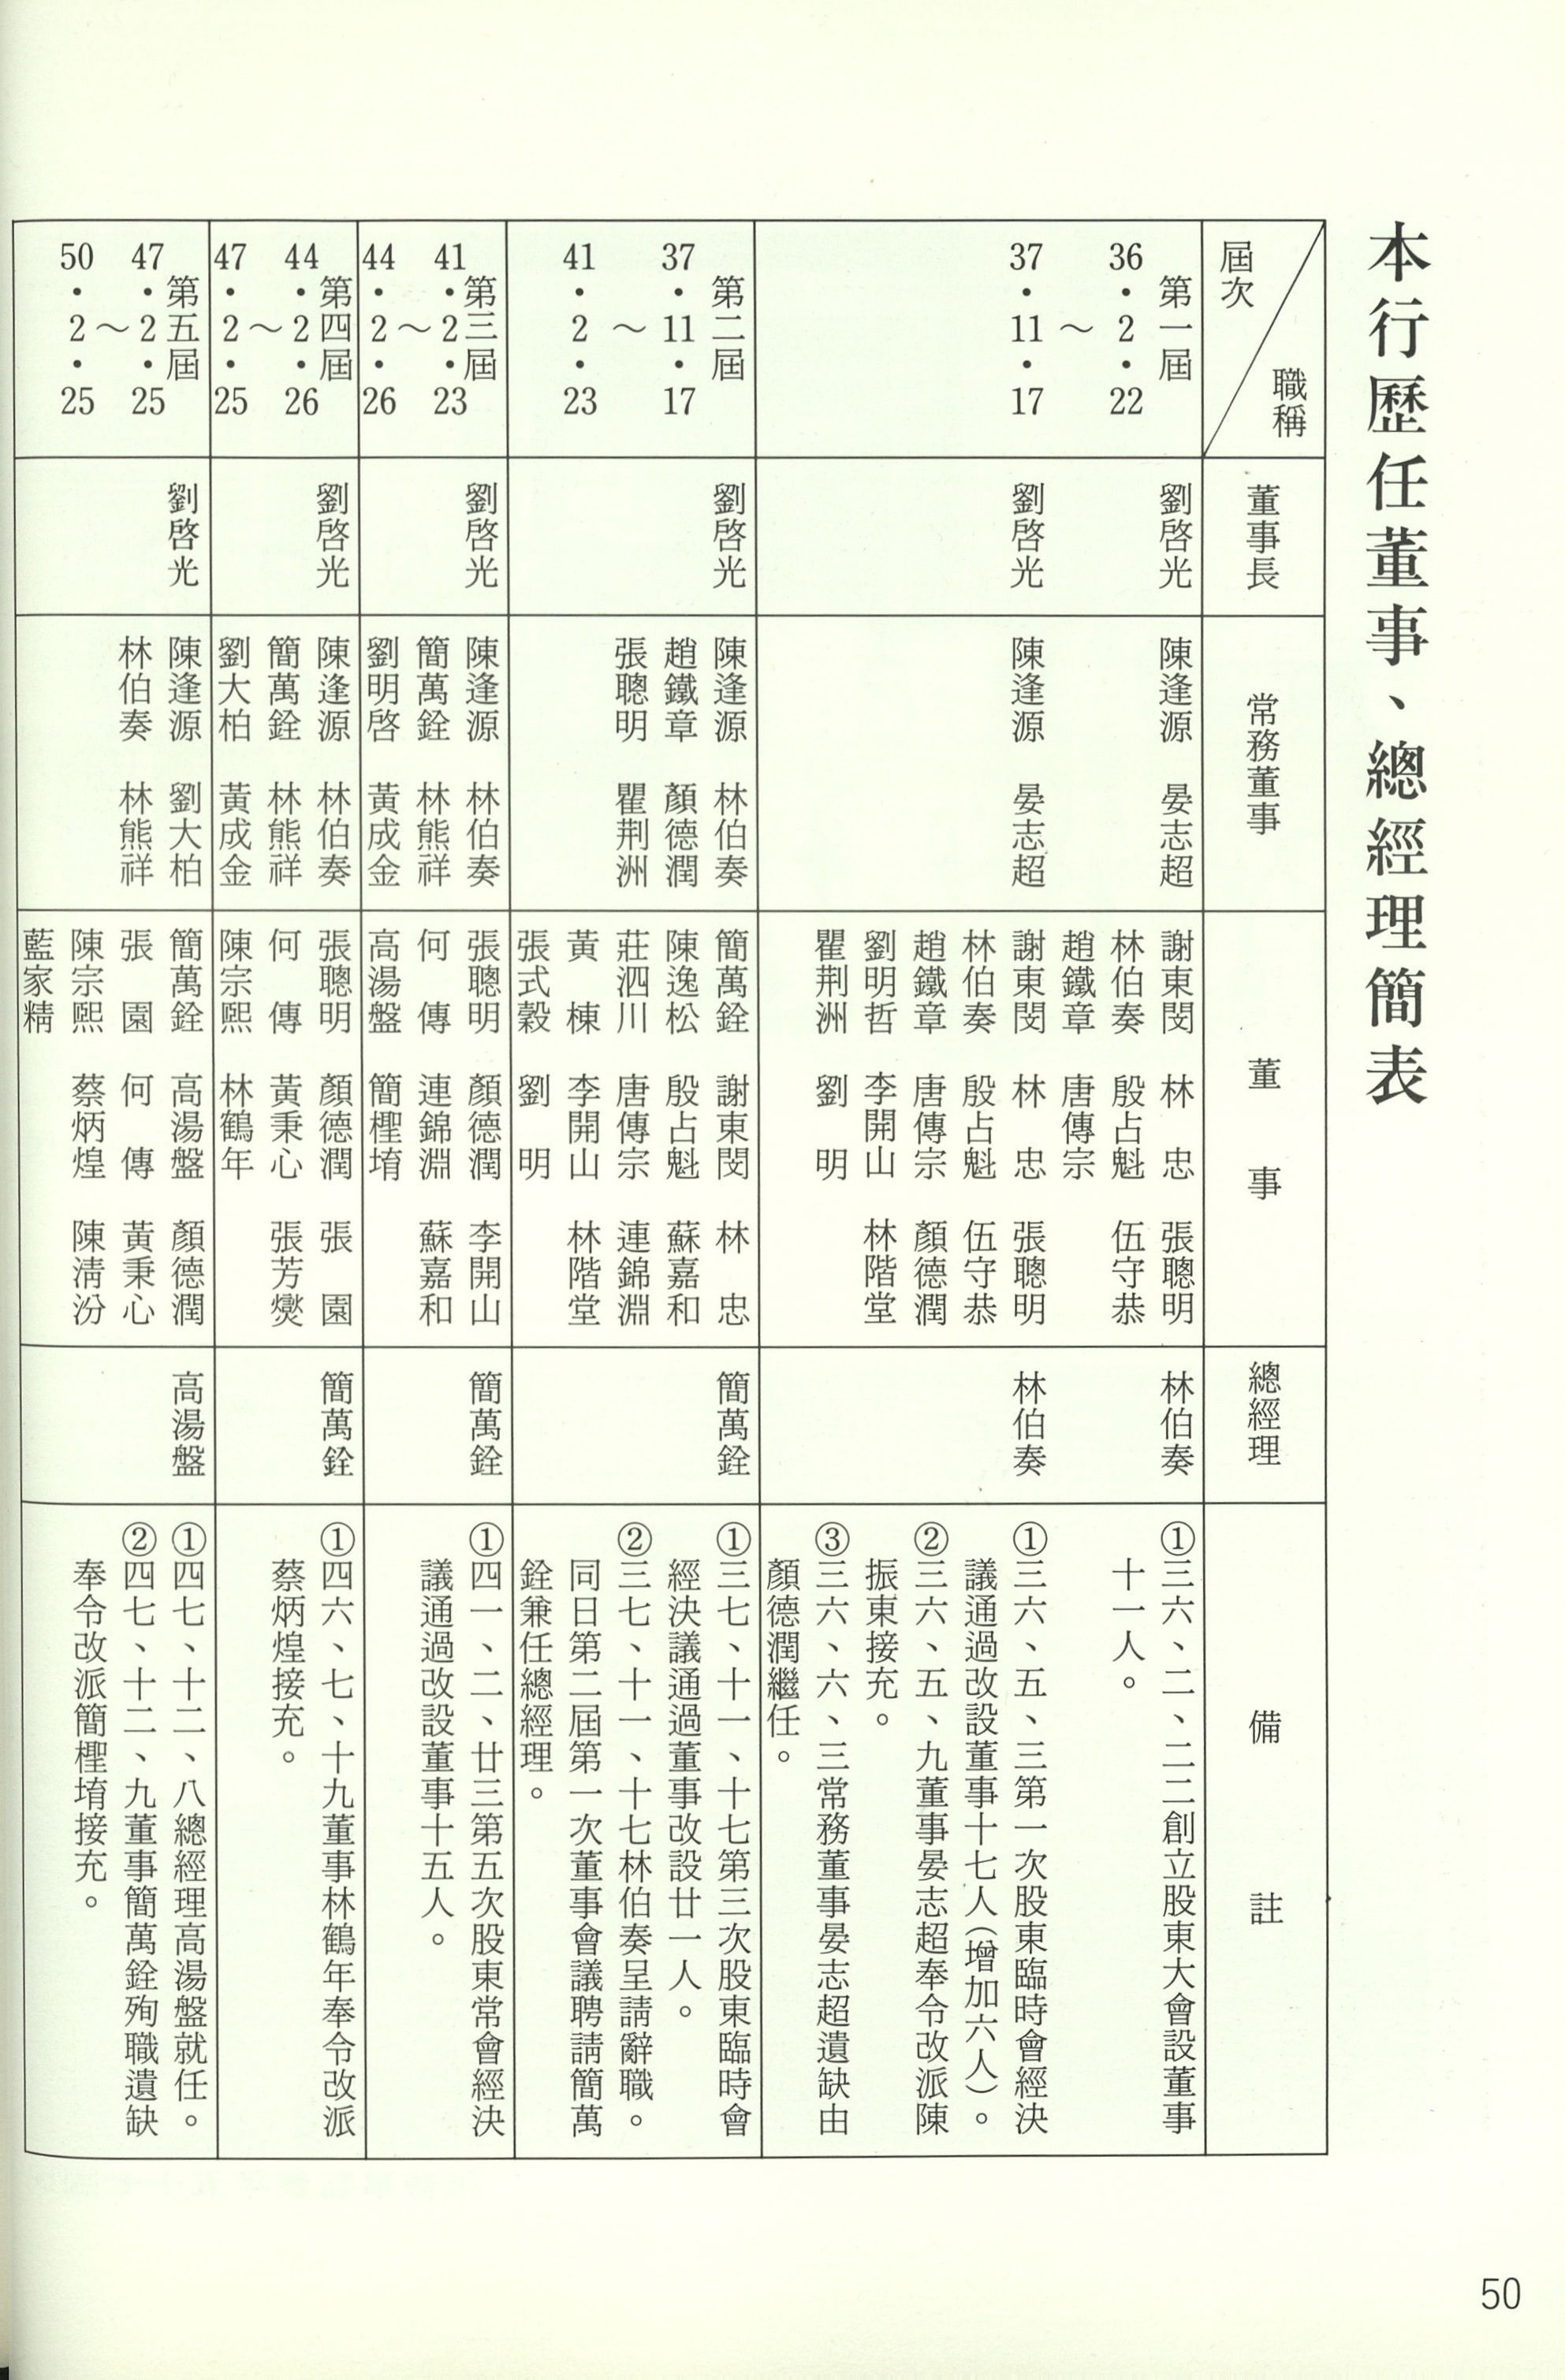 本行歷任董事、總經理簡表
屆次
職稱
董事長
常務董事
董事
總經理
備註
第一屆
36・2・22
～
37・11・17
劉啓光
劉啓光
陳逢源 晏志超
陳逢源 晏志超
謝東閔 林忠 張聰明
林伯奏 殷占魁 伍守恭
趙鐵章 唐傳宗
謝東閔 林忠 張聰明
林伯奏 殷占魁 伍守恭
趙鐵章 唐傳宗 顏德潤
劉明哲 李開山 林階堂
瞿荆洲 劉明
林伯奏
林伯奏
①三六、二、二二創立股東大會設董事
十一人。
①三六、五、三第一次股東臨時會經決
議通過改設董事十七人（增加六人）。
②三六、五、九董事晏志超奉令改派陳
振東接充。
③三六、六、三常務董事晏志超遺缺由
顏德潤繼任。
第二屆
37・11・17
～
41・2・23
劉啓光
陳逢源 林伯奏
趙鐵章 顏德潤
張聰明 瞿荆洲
簡萬銓 謝東閔 林忠
陳逸松 殷占魁 蘇嘉和
莊泗川 唐傳宗 連錦淵
黃棟 李開山 林階堂
張式穀 劉明
簡萬銓
①三七、十一、十七第三次股東臨時會
經決議通過董事改設廿一人。
②三七、十一、十七林伯奏呈請辭職。
同日第二屆第一次董事會議聘請簡萬
銓兼任總經理。
第三屆
41・2・23
～
44・2・26
劉啓光
陳逢源 林伯奏
簡萬銓 林熊祥
劉明啓 黃成金
張聰明 顏德潤 李開山
何傳 連錦淵 蘇嘉和
高湯盤 簡檉堉
簡萬銓
①四一、二、廿三第五次股東常會經決
議通過改設董事十五人。
第四屆
44・2・26
～
47・2・25
劉啓光
陳逢源 林伯奏
簡萬銓 林熊祥
劉大柏 黃成金
張聰明 顏德潤 張園
何傳 黃秉心 張芳燮
陳宗熙 林鶴年
簡萬銓
①四六、七、十九董事林鶴年奉令改派
蔡炳煌接充。
第五屆
47・2・25
～
50・2・25
劉啓光
陳逢源 劉大柏
林伯奏 林熊祥
簡萬銓 高湯盤 顏德潤
張園 何傳 黃秉心
陳宗熙 蔡炳煌 陳清汾
藍家精
高湯盤
①四七、十二、八總經理高湯盤就任。
②四七、十二、九董事簡萬銓殉職遺缺
奉令改派簡檉堉接充。
50